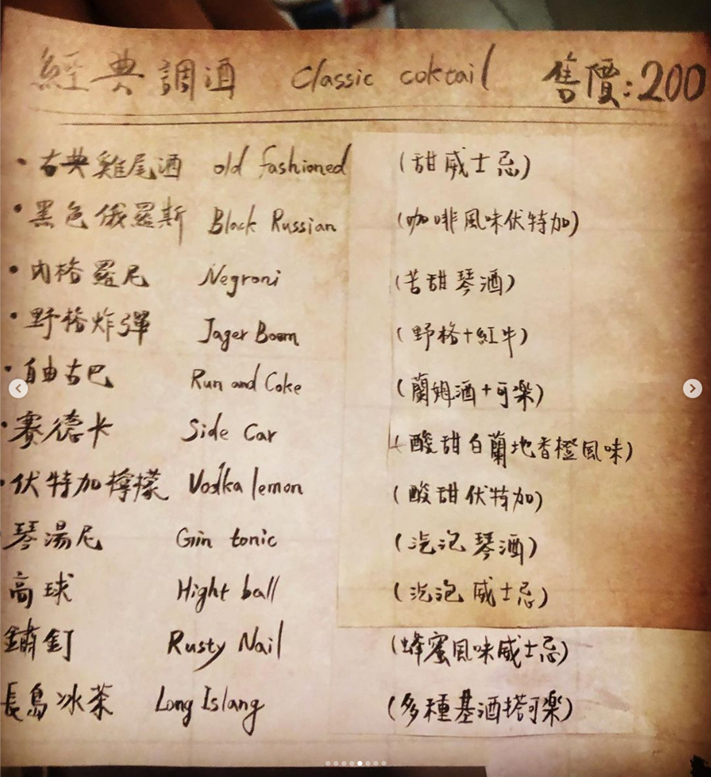 經典調酒 Classic coktail 售價:200
·古典雞尾酒 old fashioned (甜威士忌)
·黑色俄羅斯 Black Russian (咖啡風味伏特加)
·內格羅尼 Negroni (苦甜琴酒)
·野格炸彈 Jager Boom (野格+紅牛)
·自由古巴 Run and Coke (蘭姆酒+可樂)
·賽德卡 Side Car (酸甜白蘭地香橙風味)
·伏特加檸檬 Vodka lemon (酸甜伏特加)
琴湯尼 Gin tonic (泡泡琴酒)
高球 Hight ball (泡泡威士忌)
鏽釘 Rusty Nail (蜂蜜風味威士忌)
長島冰茶 Long Islang (多種基酒搭可樂)